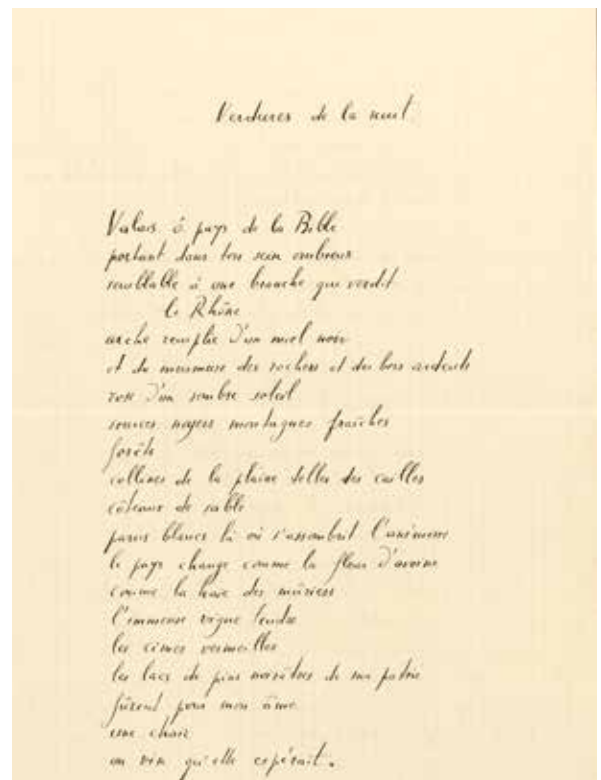 Verdures de la nuit.
Valais ô pays de la Bible
portant dans ton sein ombreux
semblable à une branche qui verdit
le Rhône
arche remplie d'un miel noir
et du murmure des rochers et des bois ardents
rose d'un sombre soleil
sources noyers montagnes fraîches
forêts
collines de la plaine telles des cailles
côteaux de sable
parois blancs là où s'assombrit l'anémone
le pays change comme la fleur d'avoine
comme la haie des mûriers
l'immense vigne tendre
les cimes vermeilles
les lacs de pins noirâtres de ma patrie
fûrent pour mon âme
une chair
un vin qu'elle espérait.